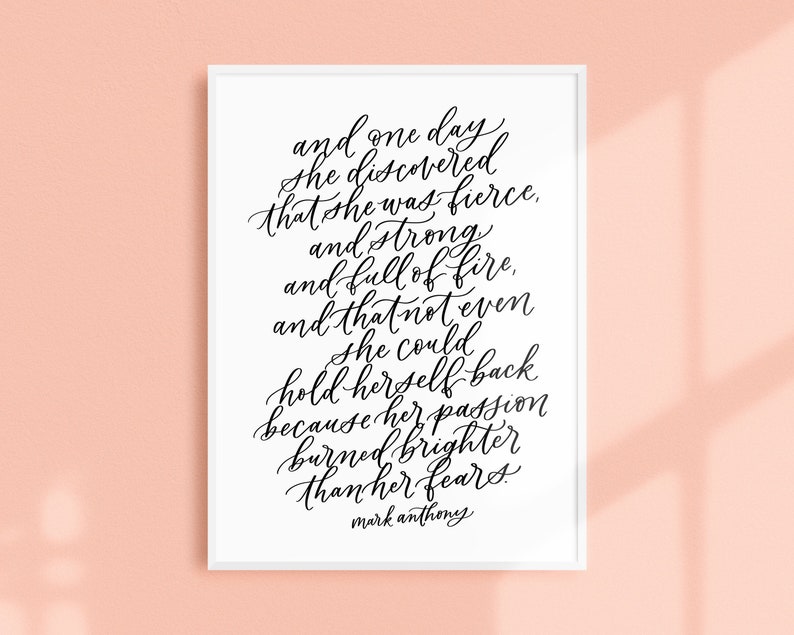 and one day
she discovered
that she was fierce,
and strong,
and full of fire,
and that not even
she could
hold herself back
because her passion
burned brighter
than her fears.
mark anthony